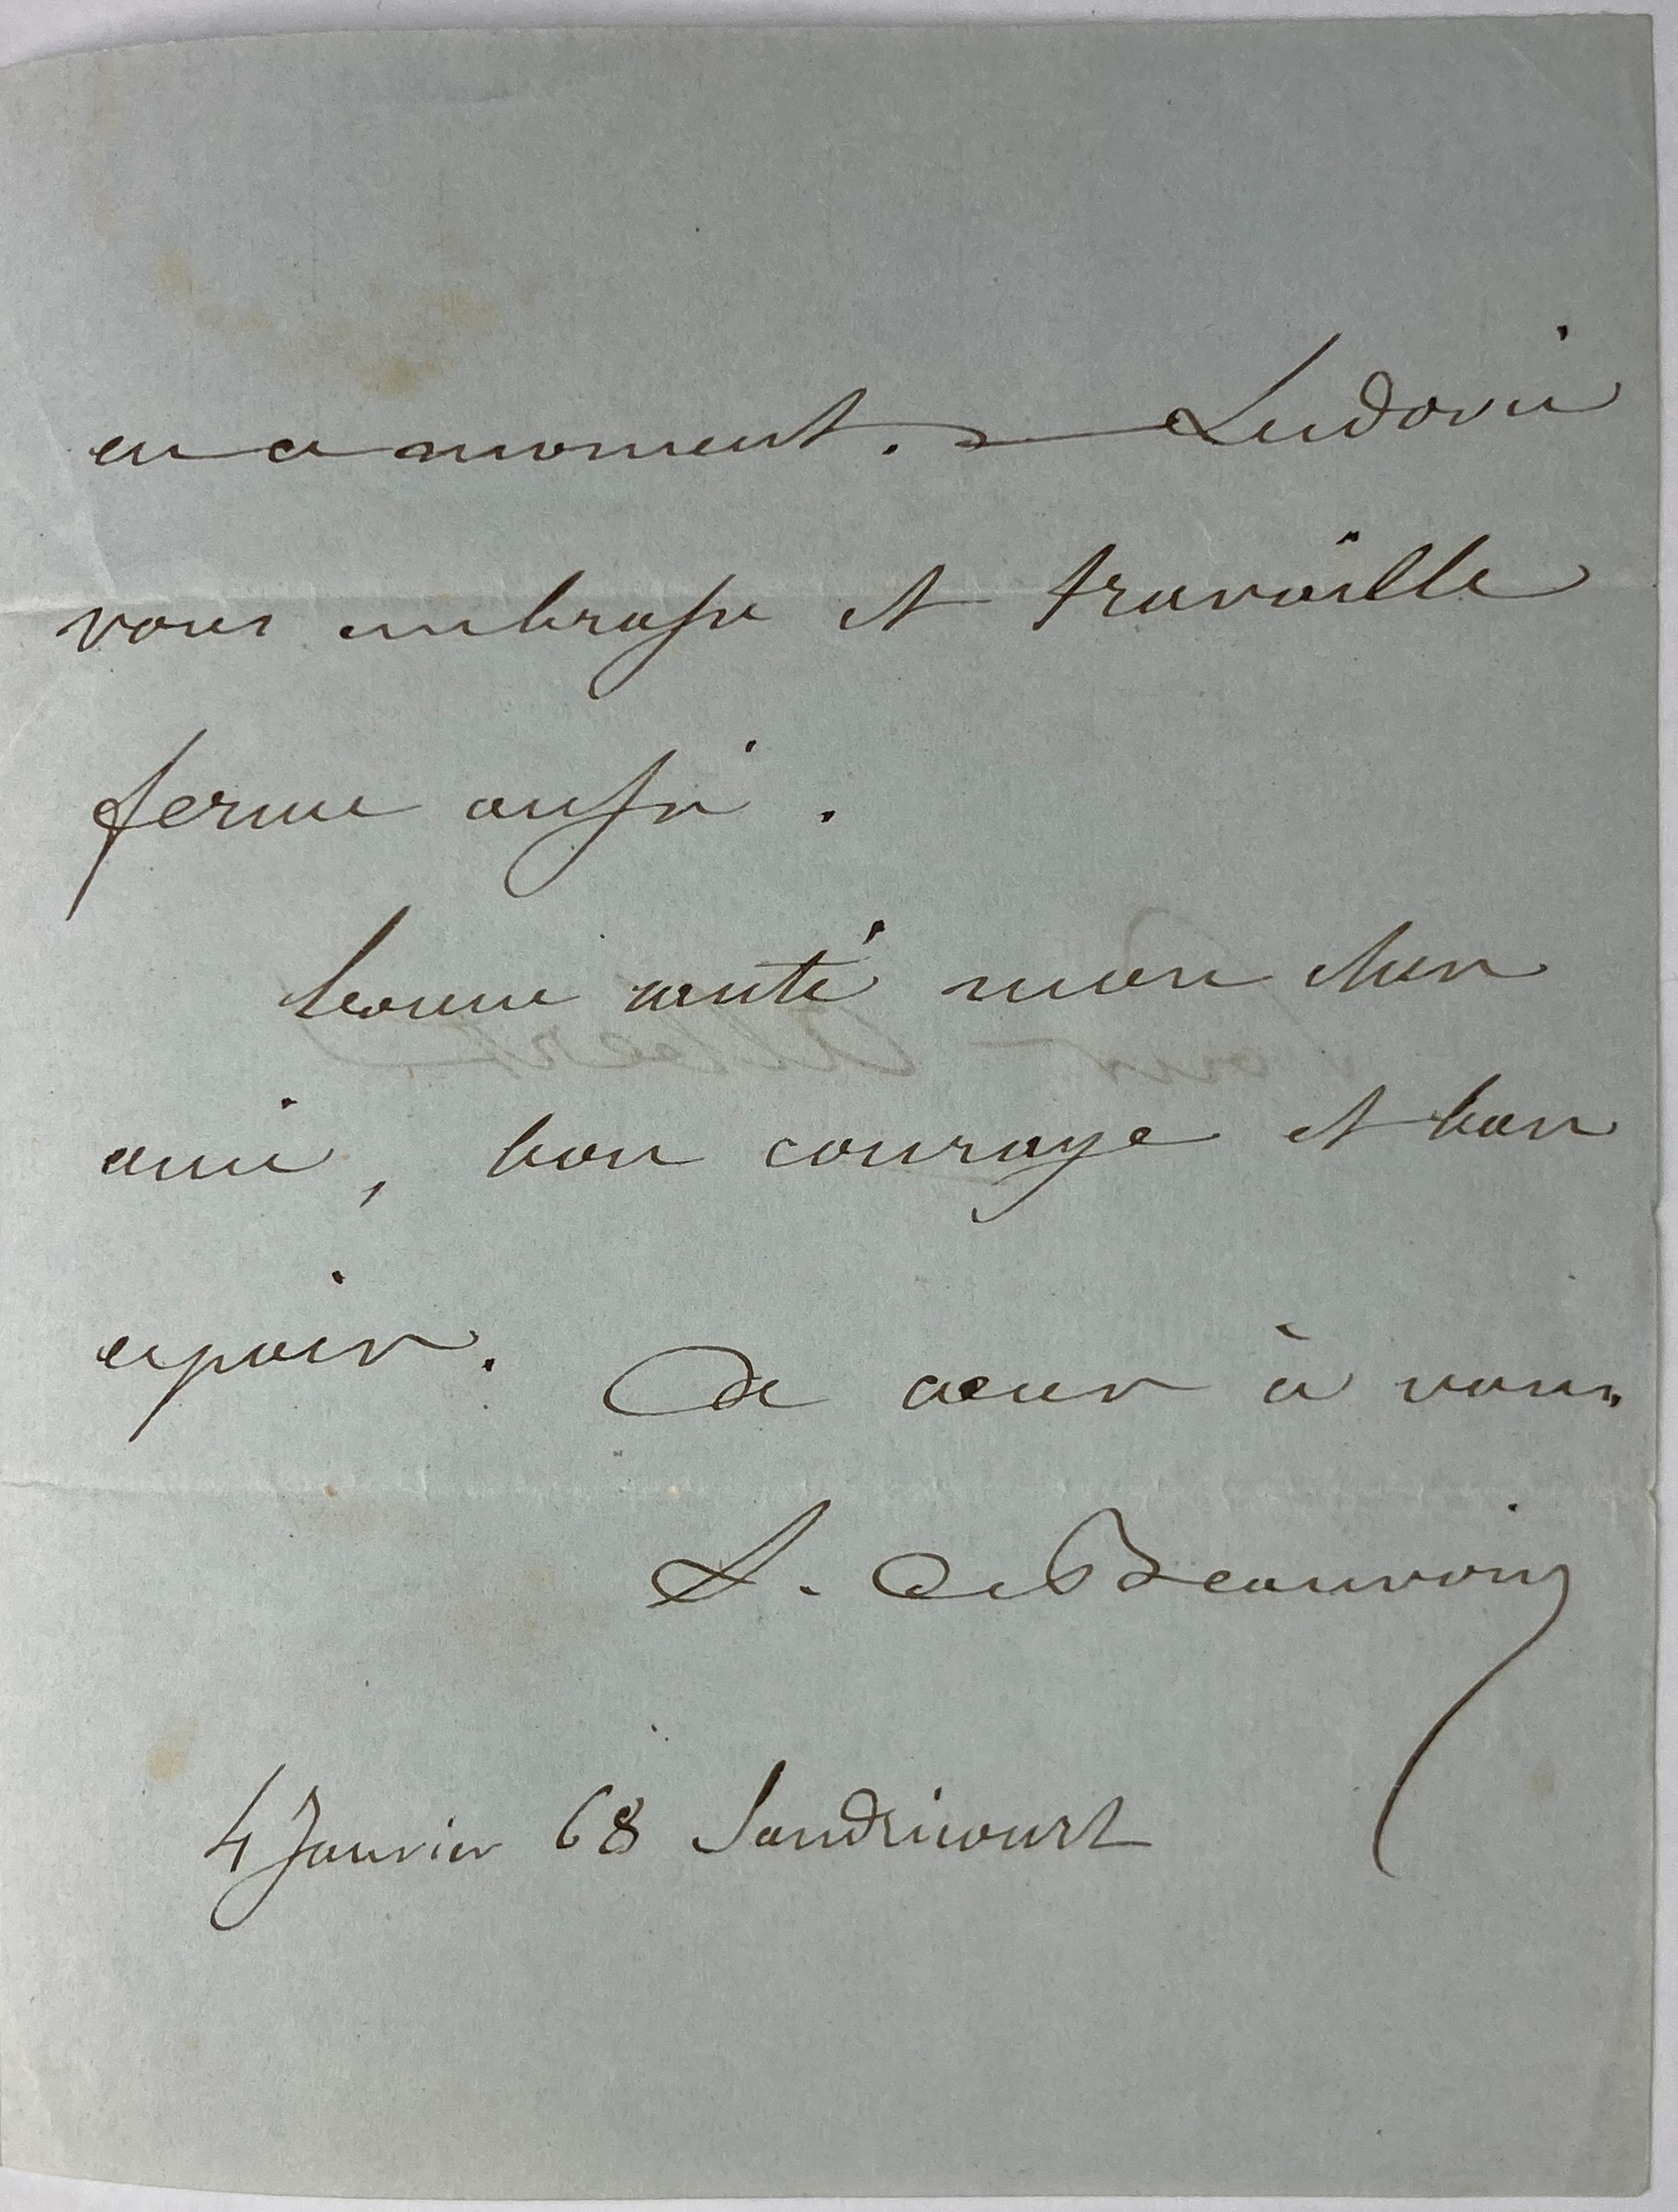 en ce moment. — Ludovic
vous embrasse et travaille
ferme aussi.
bonne santé mon cher
ami, bon courage et bon
espoir. De cœur à vous.
L. de Beauvoir
4 Janvier 68 Sandricourt